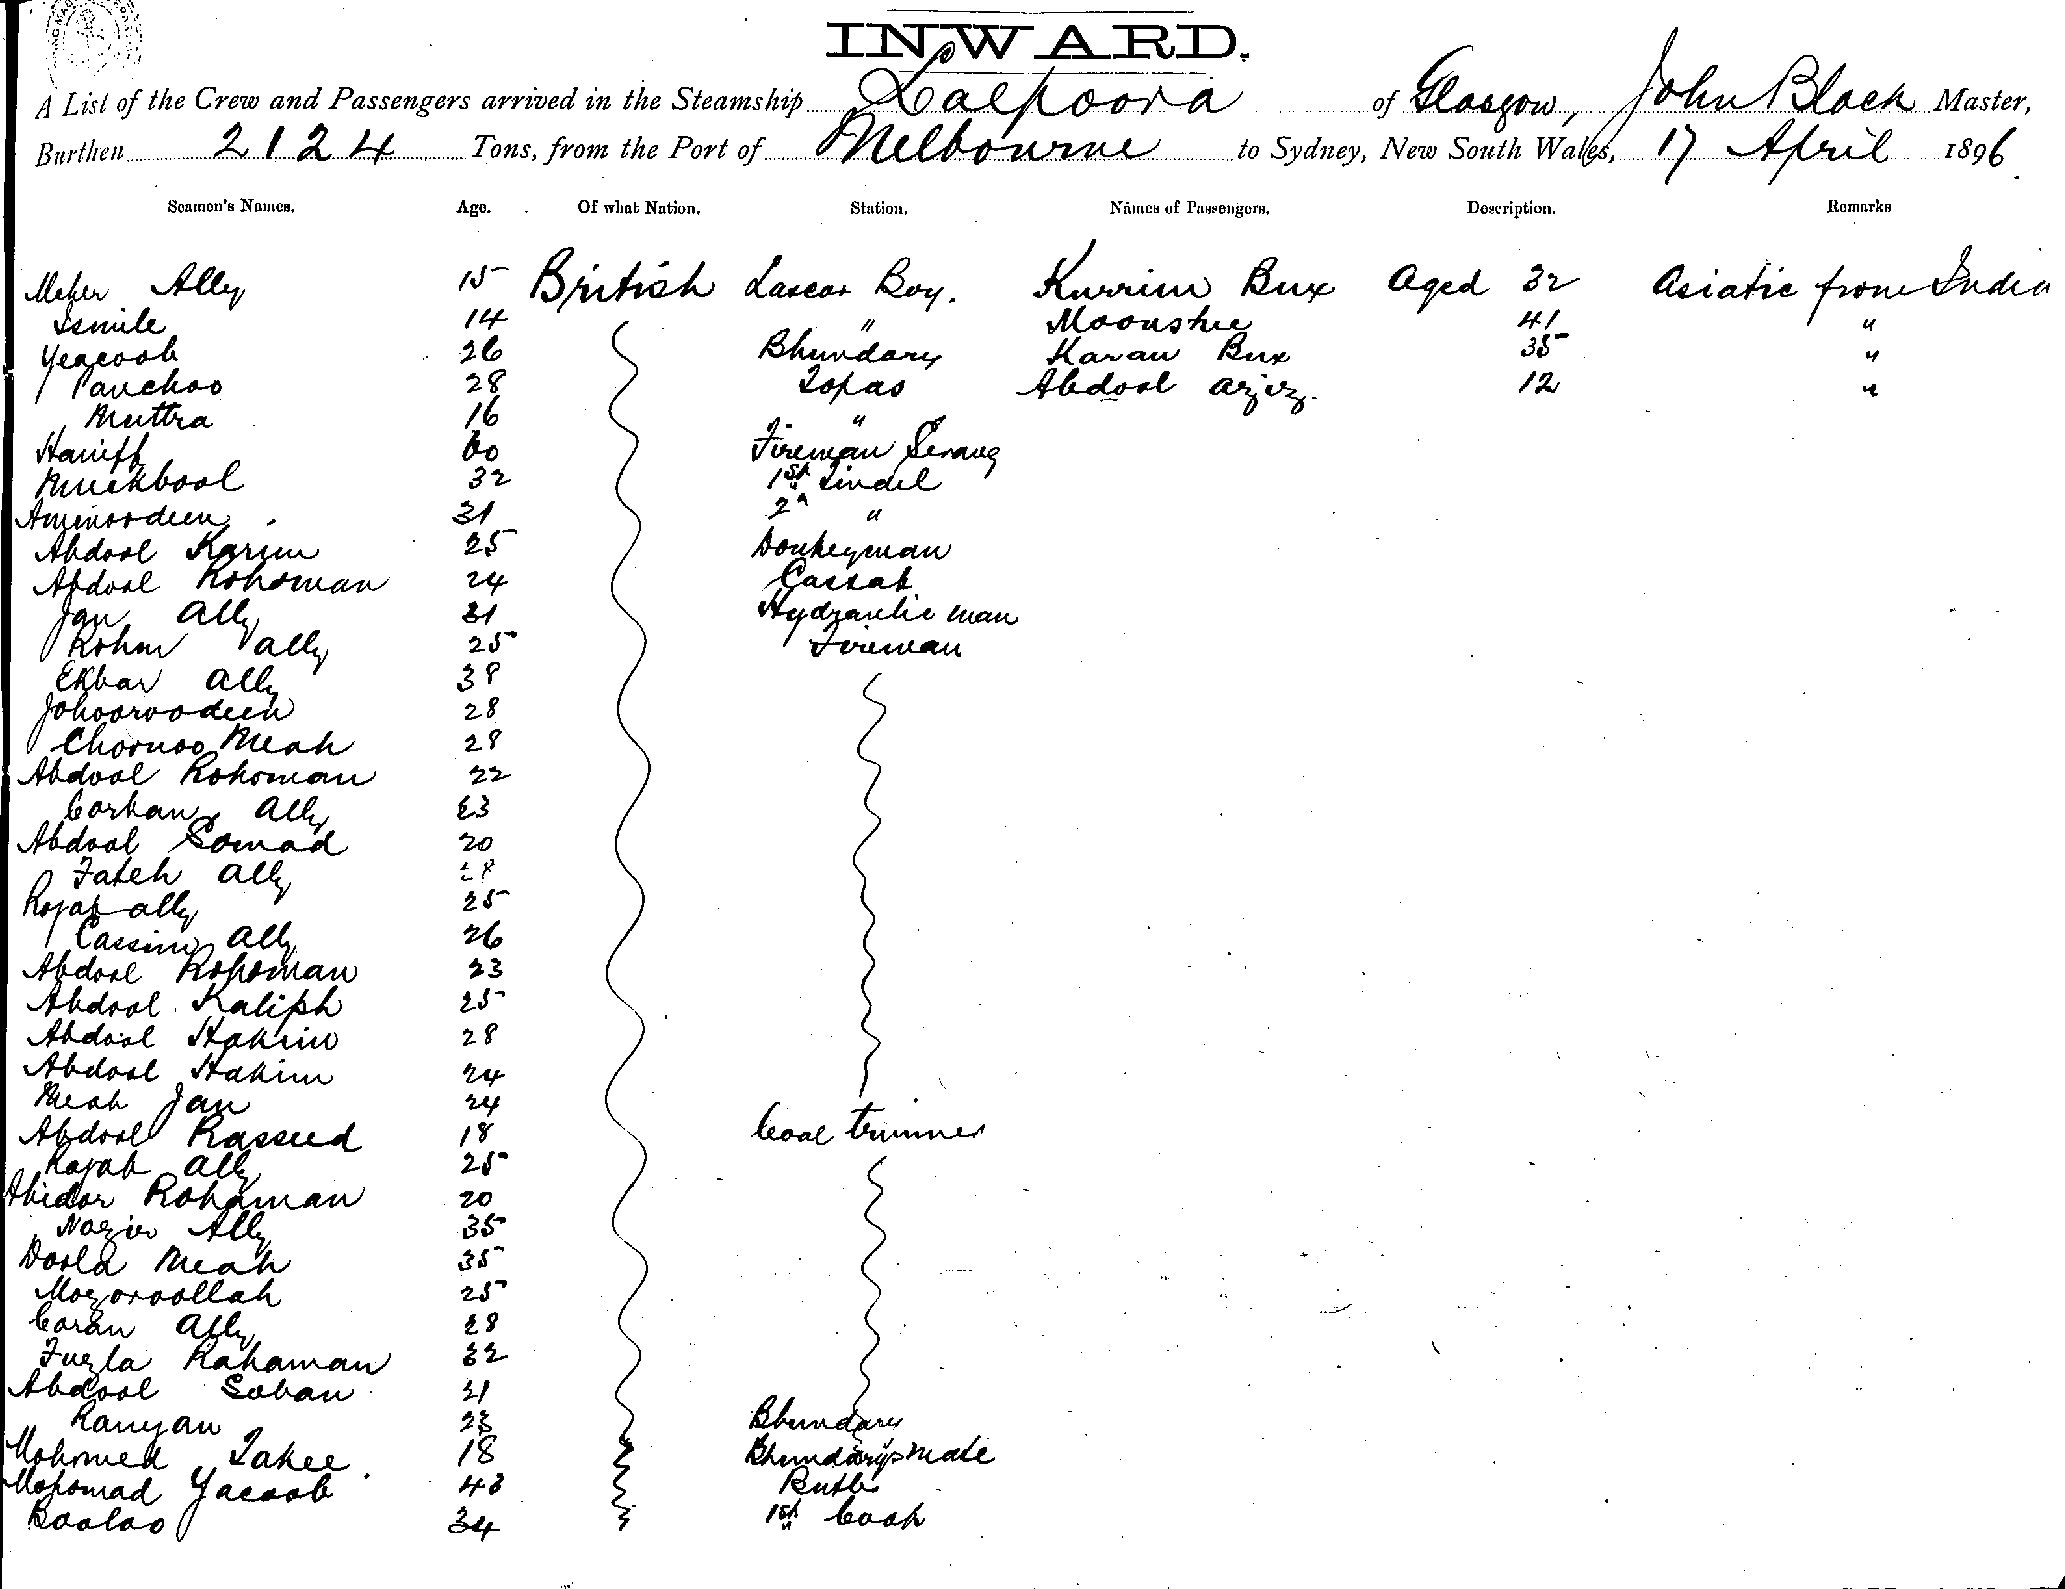 INWARD.
A List of the Crew and Passengers arrived in the Steamship Lalpoora of Glasgow, John Black Master,
Burthen 2124 Tons, from the Port of Melbourne to Sydney, New South Wales, 17 April 1896
Seamen's Names. Age. Of what Nation. Station. Names of Passengers. Description. Remarks
Meher Ally 15 British Lascar Boy. Kurrim Bux Aged 32 Asiatic from India
Ismile 14 " Moonshee 41 "
Yeacoob 26 Bhundary Karan Bux 35 "
Panchoo 28 Topas Abdool Aziz. 12 "
Muttra 16 "
Haniff 60 Fireman Serang
Muckbool 32 1st Tindel
Aminoodeen 31 2nd "
Abdool Karim 25 Donkeyman
Abdool Rohoman 24 Cassab
Jan Ally 31 Hydraulic man
Rohm Ally 25 Fireman
Ekbar Ally 38
Johooroodeen 28
Choonoo Meah 28
Abdool Rohoman 22
Corban Ally 23
Abdool Somad 20
Fateh Ally 28
Rojab Ally 25
Cassim Ally 26
Abdool Rohoman 23
Abdool Kaliph 25
Abdool Hakim 28
Abdool Hakim 24
Meah Jan 24
Abdool Rasseed 18 Coal trimmer
Rajab Ally 25
Abidor Rohaman 20
Nazir Ally 35
Doola Meah 35
Mozoroollah 25
Coran Ally 28
Fuzla Rahaman 32
Abdool Soban 21
Ramjan 23 Bhundary
Mohomed Takee 18 Bhundary's mate
Mohomad Yacoob 43 Butler
Booloo 34 1st Cook